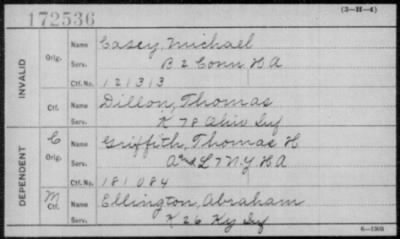 172536
(3-H-4)
INVALID
Orig.
Name Casey, Michael
Serv. B 2 Conn H A
Ctf. No. 121313
Ctf.
Name Dillon, Thomas
Serv. K 78 Ohio Inf
DEPENDENT
C
Orig.
Name Griffith, Thomas H
Serv. A L 7 N.Y H A
Ctf. No. 181084
M
Ctf.
Name Ellington, Abraham
Serv. K 26 Ky Inf